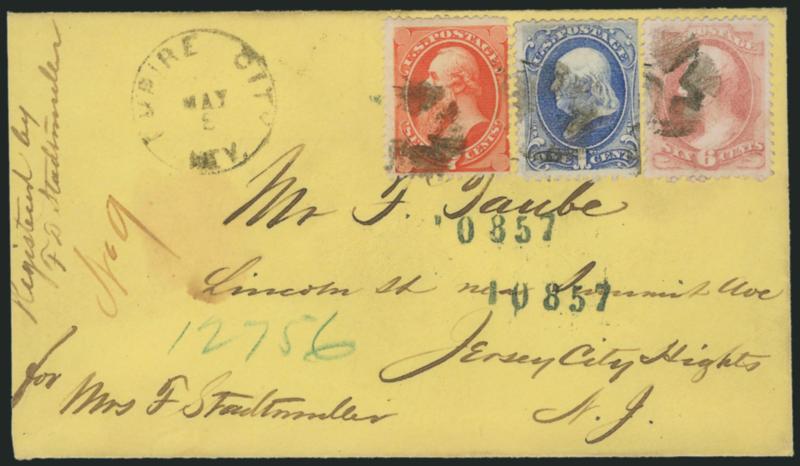 EMPIRE CITY
MAY
5
NEV.
U.S. POSTAGE
SEVEN CENTS
U.S. POSTAGE
ONE 1 CENT
POSTAGE
SIX 6 CENTS
Registered by
F D Stadtmuller
No 9
Mr F. Taube
10857
Lincoln St near Summit Ave
10857
12756
Jersey City Hights
N. J.
for
Mrs F Stadtmuller